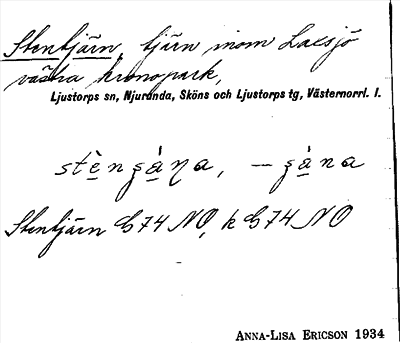 Stentjärn, tjärn inom Laxsjö
västra kronopark,
Ljustorps sn, Njurunda, Sköns och Ljustorps tg, Västernorrl. l.
Stentjärn G74 NO, k G74 NO
ANNA-LISA ERICSON 1934